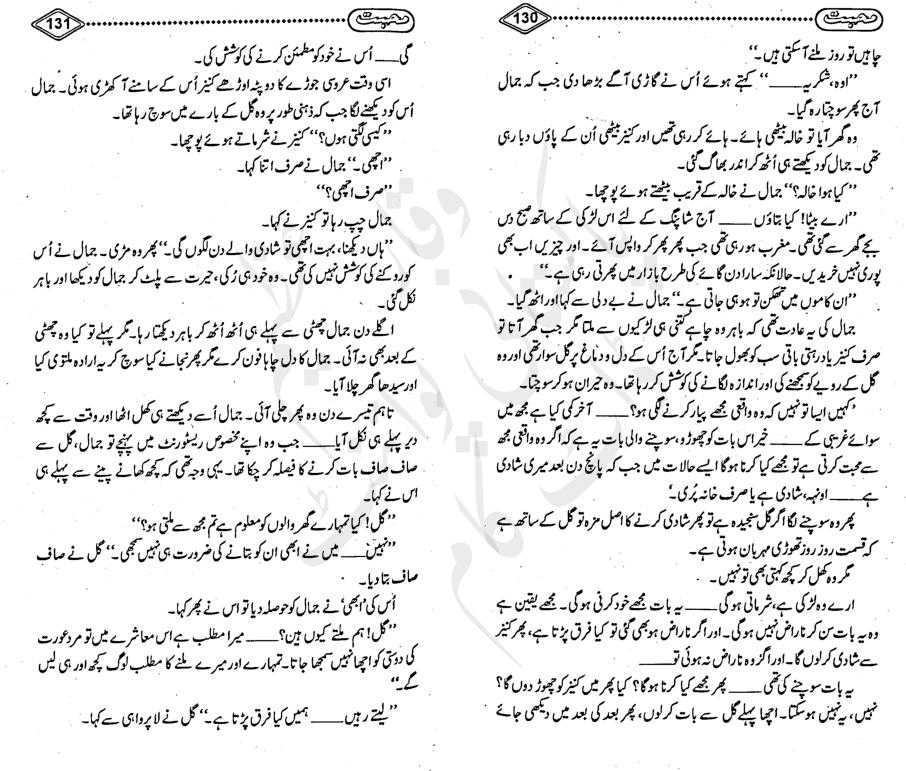 محبت 130
چاہیں تو روز ملنے آسکتی ہیں۔‘‘
’’اوہ، شکریہ ____‘‘ کہتے ہوئے اُس نے گاڑی آگے بڑھا دی جب کہ جمال
آج پھر سوچتا رہ گیا۔
وہ گھر آیا تو خالہ بیٹھی ہائے۔ ہائے کر رہی تھیں اور کنیز بیٹھی اُن کے پاؤں دبا رہی
تھی۔ جمال کو دیکھتے ہی اُٹھ کر اندر بھاگ گئی۔
’’کیا ہوا خالہ؟‘‘ جمال نے خالہ کے قریب بیٹھتے ہوئے پوچھا۔
’’ارے بیٹا! کیا بتاؤں ____ آج شاپنگ کے لئے اس لڑکی کے ساتھ صبح دس
بجے گھر سے گئی تھی۔ مغرب ہو رہی تھی جب پھر پھر کر واپس آئے۔ اور چیزیں اب بھی
پوری نہیں خریدیں۔ حالانکہ سارا دن گائے کی طرح بازار میں پھرتی رہی ہے۔‘‘
’’ان کاموں میں تھکن تو ہو ہی جاتی ہے۔‘‘ جمال نے بے دلی سے کہا اور اٹھ گیا۔
جمال کی یہ عادت تھی کہ باہر وہ چاہے کتنی ہی لڑکیوں سے ملتا مگر جب گھر آتا تو
صرف کنیز یاد رہتی باقی سب کو بھول جاتا۔ مگر آج اُس کے دل و دماغ پر گل سوار تھی اور وہ
گل کے رویے کو سمجھنے کی اور اندازہ لگانے کی کوشش کر رہا تھا۔ وہ حیران ہو کر سوچتا۔
’کہیں ایسا تو نہیں کہ وہ واقعی مجھے پیار کرنے لگی ہو؟ ____ آخر کی کیا ہے مجھ میں
سوائے غریبی کے ____ خیر اس بات کو چھوڑو، سوچنے والی بات یہ ہے کہ اگر وہ واقعی مجھ
سے محبت کرتی ہے تو مجھے کیا کرنا ہوگا ایسے حالات میں جب کہ پانچ دن بعد میری شادی
ہے ____ اونہہ، شادی ہے یا صرف خانہ پُری۔‘
پھر وہ سوچنے لگا اگر گل سنجیدہ ہے تو پھر شادی کرنے کا اصل مزہ تو گل کے ساتھ ہے
کہ قسمت روز روز تھوڑی مہربان ہوتی ہے۔
مگر وہ کھل کر کچھ کہتی بھی تو نہیں۔
ارے وہ لڑکی ہے، شرماتی ہوگی ____ یہ بات مجھے خود کرنی ہوگی۔ مجھے یقین ہے
وہ یہ بات سن کر ناراض نہیں ہوگی۔ اور اگر ناراض ہو بھی گئی تو کیا فرق پڑتا ہے، پھر کنیز
سے شادی کر لوں گا۔ اور اگر وہ ناراض نہ ہوئی تو ____
یہ بات سوچنے کی تھی ____ پھر مجھے کیا کرنا ہوگا؟ کیا پھر میں کنیز کو چھوڑ دوں گا؟
نہیں، یہ نہیں ہوسکتا۔ اچھا پہلے گل سے بات کرلوں، پھر بعد کی بعد میں دیکھی جائے
محبت 131
گی ____ اُس نے خود کو مطمئن کرنے کی کوشش کی۔
اسی وقت عروسی جوڑے کا دوپٹہ اوڑھے کنیز اُس کے سامنے آ کھڑی ہوئی۔ جمال
اُس کو دیکھنے لگا جب کہ ذہنی طور پر وہ گل کے بارے میں سوچ رہا تھا۔
’’کیسی لگتی ہوں؟‘‘ کنیز نے شرماتے ہوئے پوچھا۔
’’اچھی۔‘‘ جمال نے صرف اتنا کہا۔
’’صرف اچھی؟‘‘
جمال چپ رہا تو کنیز نے کہا۔
’’ہاں دیکھنا، بہت اچھی تو شادی والے دن لگوں گی۔‘‘ پھر وہ مڑی۔ جمال نے اُس
کو روکنے کی کوشش نہیں کی تھی۔ وہ خود ہی رُکی، حیرت سے پلٹ کر جمال کو دیکھا اور باہر
نکل گئی۔
اگلے دن جمال چھٹی سے پہلے ہی اُٹھ اُٹھ کر باہر دیکھتا رہا۔ مگر پہلے تو کیا وہ چھٹی
کے بعد بھی نہ آئی۔ جمال کا دل چاہا فون کرے مگر پھر نجانے کیا سوچ کر یہ ارادہ ملتوی کیا
اور سیدھا گھر چلا آیا۔
تاہم تیسرے دن وہ پھر چلی آئی۔ جمال اُسے دیکھتے ہی کھل اٹھا اور وقت سے کچھ
دیر پہلے ہی نکل آیا ____ جب وہ اپنے مخصوص ریسٹورنٹ میں پہنچے تو جمال، گل سے
صاف صاف بات کرنے کا فیصلہ کر چکا تھا۔ یہی وجہ تھی کہ کچھ کھانے پینے سے پہلے ہی
اس نے کہا۔
’’گل! کیا تمہارے گھر والوں کو معلوم ہے تم مجھ سے ملتی ہو؟‘‘
’’نہیں ____ میں نے ابھی ان کو بتانے کی ضرورت ہی نہیں سمجھی۔‘‘ گل نے صاف
صاف بتا دیا۔
اُس کی ’ابھی‘ نے جمال کو حوصلہ دیا تو اس نے پھر کہا۔
’’گل! ہم ملتے کیوں ہیں؟ ____ میرا مطلب ہے اس معاشرے میں تو مرد عورت
کی دوستی کو اچھا نہیں سمجھا جاتا۔ تمہارے اور میرے ملنے کا مطلب لوگ کچھ اور ہی لیں
گے۔‘‘
’’لیتے رہیں ____ ہمیں کیا فرق پڑتا ہے۔‘‘ گل نے لاپرواہی سے کہا۔